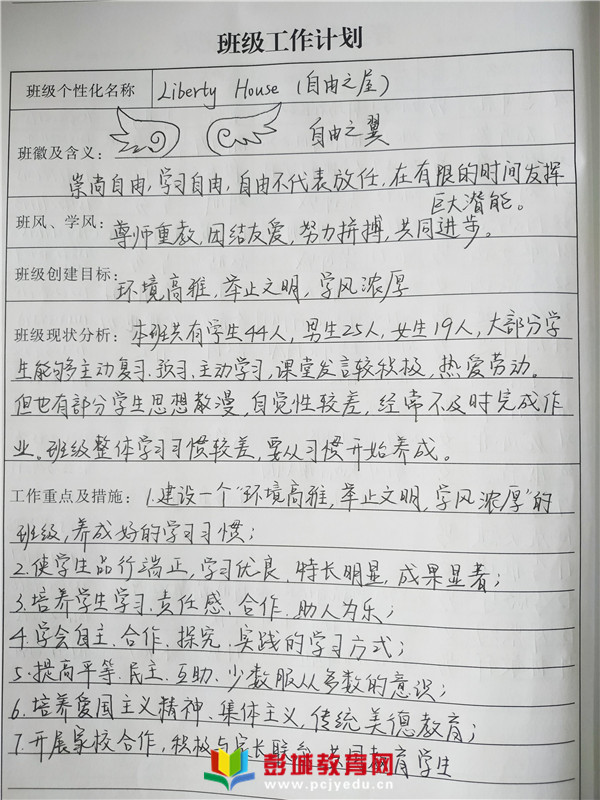 班级工作计划
班级个性化名称 Liberty House (自由之屋)
班徽及含义: 自由之翼
崇尚自由,学习自由,自由不代表放任,在有限的时间发挥
巨大潜能。
班风、学风: 尊师重教,团结友爱,努力拼搏,共同进步。
班级创建目标: 环境高雅,举止文明,学风浓厚
班级现状分析: 本班共有学生44人,男生25人,女生19人,大部分学
生能够主动复习、预习、主动学习,课堂发言较积极,热爱劳动。
但也有部分学生思想散漫,自觉性较差,经常不及时完成作
业。班级整体学习习惯较差,要从习惯开始养成。
工作重点及措施: 1.建设一个“环境高雅,举止文明,学风浓厚”的
班级,养成好的学习习惯;
2.使学生品行端正,学习优良、特长明显,成果显著;
3.培养学生学习、责任感、合作、助人为乐;
4.学会自主、合作、探究、实践的学习方式;
5.提高平等、民主、互助、少数服从多数的意识;
6.培养爱国主义精神、集体主义,传统美德教育;
7.开展家校合作,积极与家长联系,共同教育学生
彭城教育网
www.pcjyedu.com